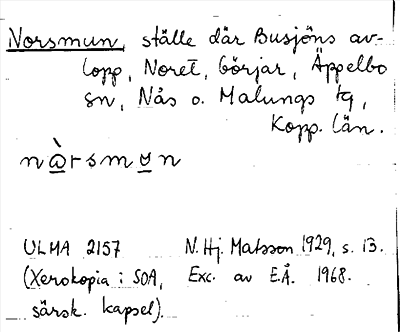 Norsmun, ställe där Busjöns av-
lopp, Noret, börjar, Äppelbo
sn, Nås o. Malungs tg,
Kopp. län.
nàrsmun
ULMA 2157 N. Hj. Matsson 1929, s. 13.
(Xerokopia i SOA, Exc. av E.Å. 1968.
särsk. kapsel).